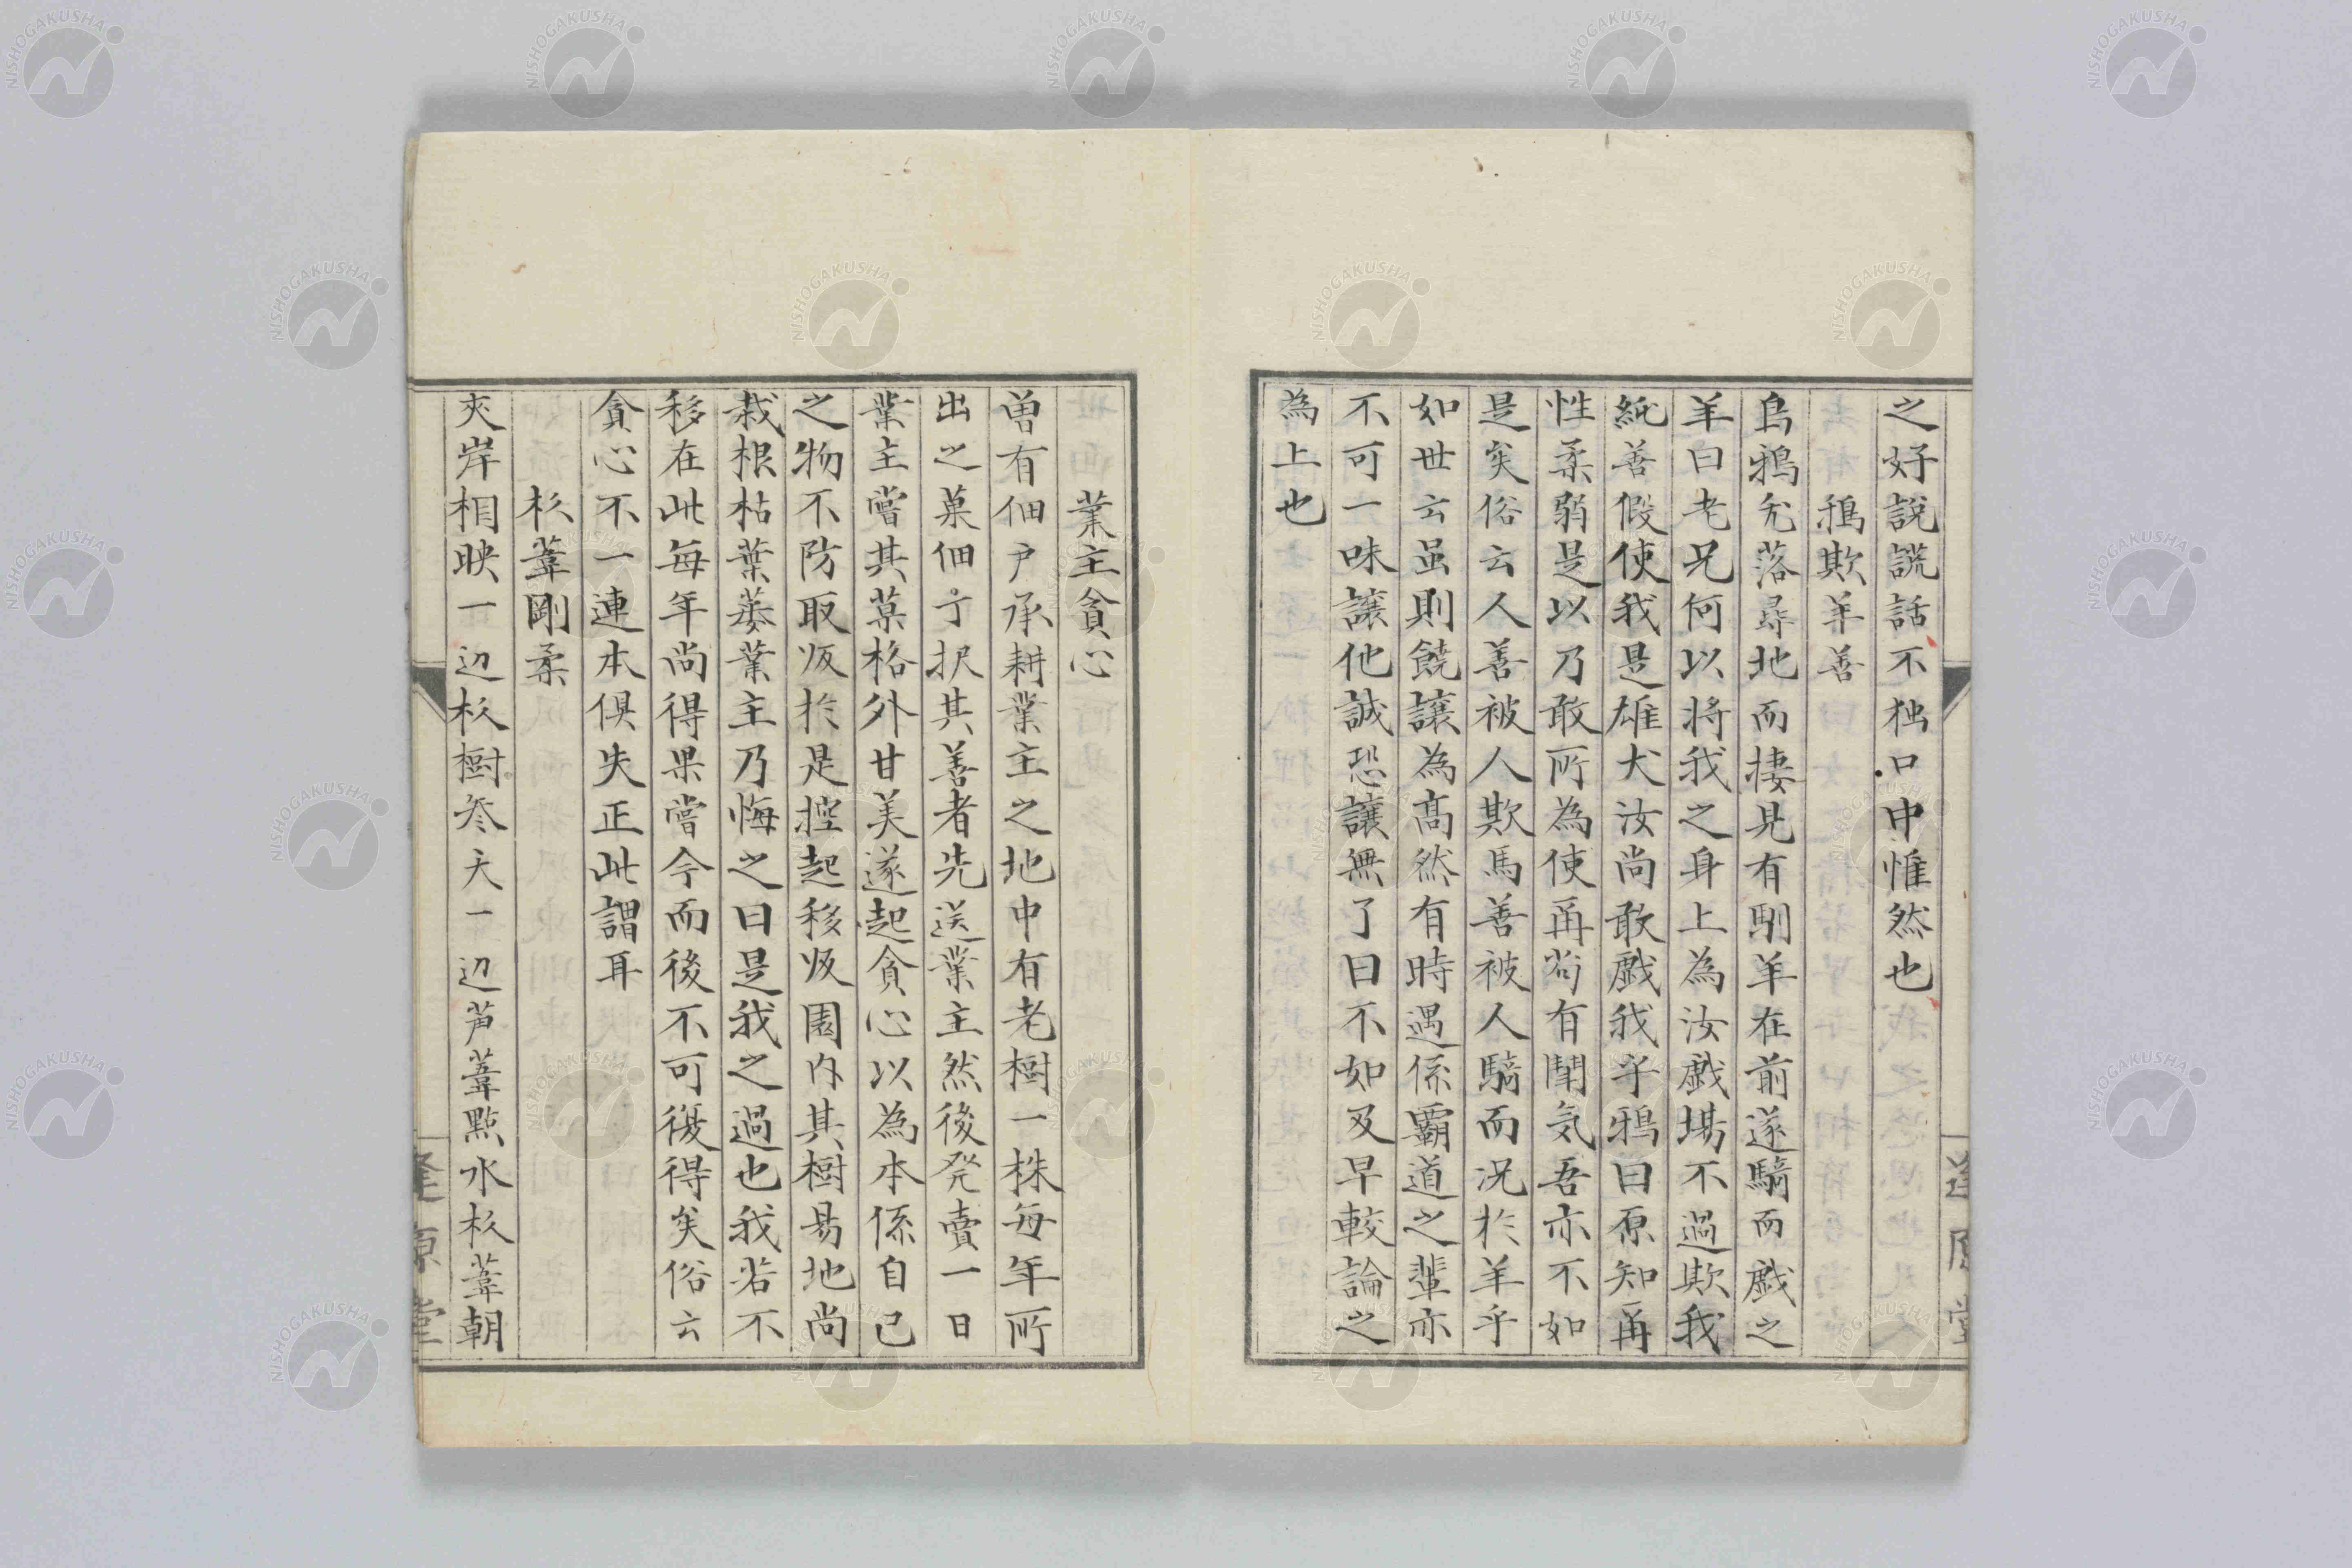 之好説謊話不独口中惟然也
鴉欺羊善
烏鴉充落尋地而棲見有馴羊在前遂騎而戯之
羊曰老兄何以将我之身上為汝戯場不過欺我
純善假使我是雄犬汝尚敢戯我乎鴉曰原知爾
性柔弱是以乃敢所為使爾尚有鬪気吾亦不如
是矣俗云人善被人欺馬善被人騎而况於羊乎
如世云虽則饒讓為高然有時遇係霸道之輩亦
不可一味讓他誠恐讓無了日不如及早較論之
為上也
業主貪心
曽有佃户承耕業主之地中有老樹一株每年所
出之菓佃亍択其善者先送業主然後発賣一日
業主嘗其菓格外甘美遂起貪心以為本係自己
之物不防取皈於是控起移皈園内其樹易地尚
栽根枯葉萎業主乃悔之曰是我之過也我若不
移在此每年尚得果嘗今而後不可復得矣俗云
貪心不一連本俱失正此謂耳
杉葦剛柔
夾岸相映一辺杉樹参天一辺芦葦點水杉葦朝
逢原堂
逢原堂
NISHOGAKUSHA